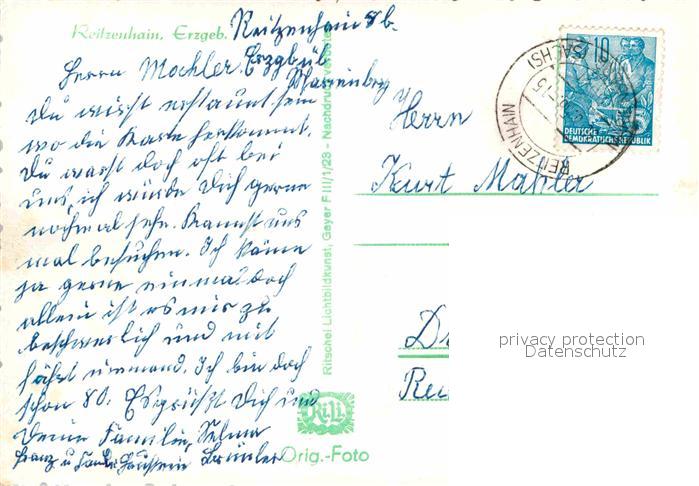 Reitzenhain, Erzgeb.
Reitzenhain 8b.
Erzgbürg
Marienberg
Herrn Mahler.
Du wirst erstaunt sein
wo die Karte herkommt.
Du warst doch oft bei
uns, ich würde Dich gerne
nochmal sehn. Kannst uns
mal besuchen. Ich käme
ja gerne einmal doch
allein ist es mir zu
beschwerlich und mit
fährt niemand. Ich bin doch
schon 80. Es grüßt Dich und
Deine Familie, Selma
Franz u
Ritschel Lichtbildkunst, Geyer F III/1/23 - Nachdruck verboten
RiLi
Orig.-Foto
REITZENHAIN
(SACHS)
10
DEUTSCHE
DEMOKRATISCHE REPUBLIK
Herrn
Kurt Mahler
privacy protection
Datenschutz